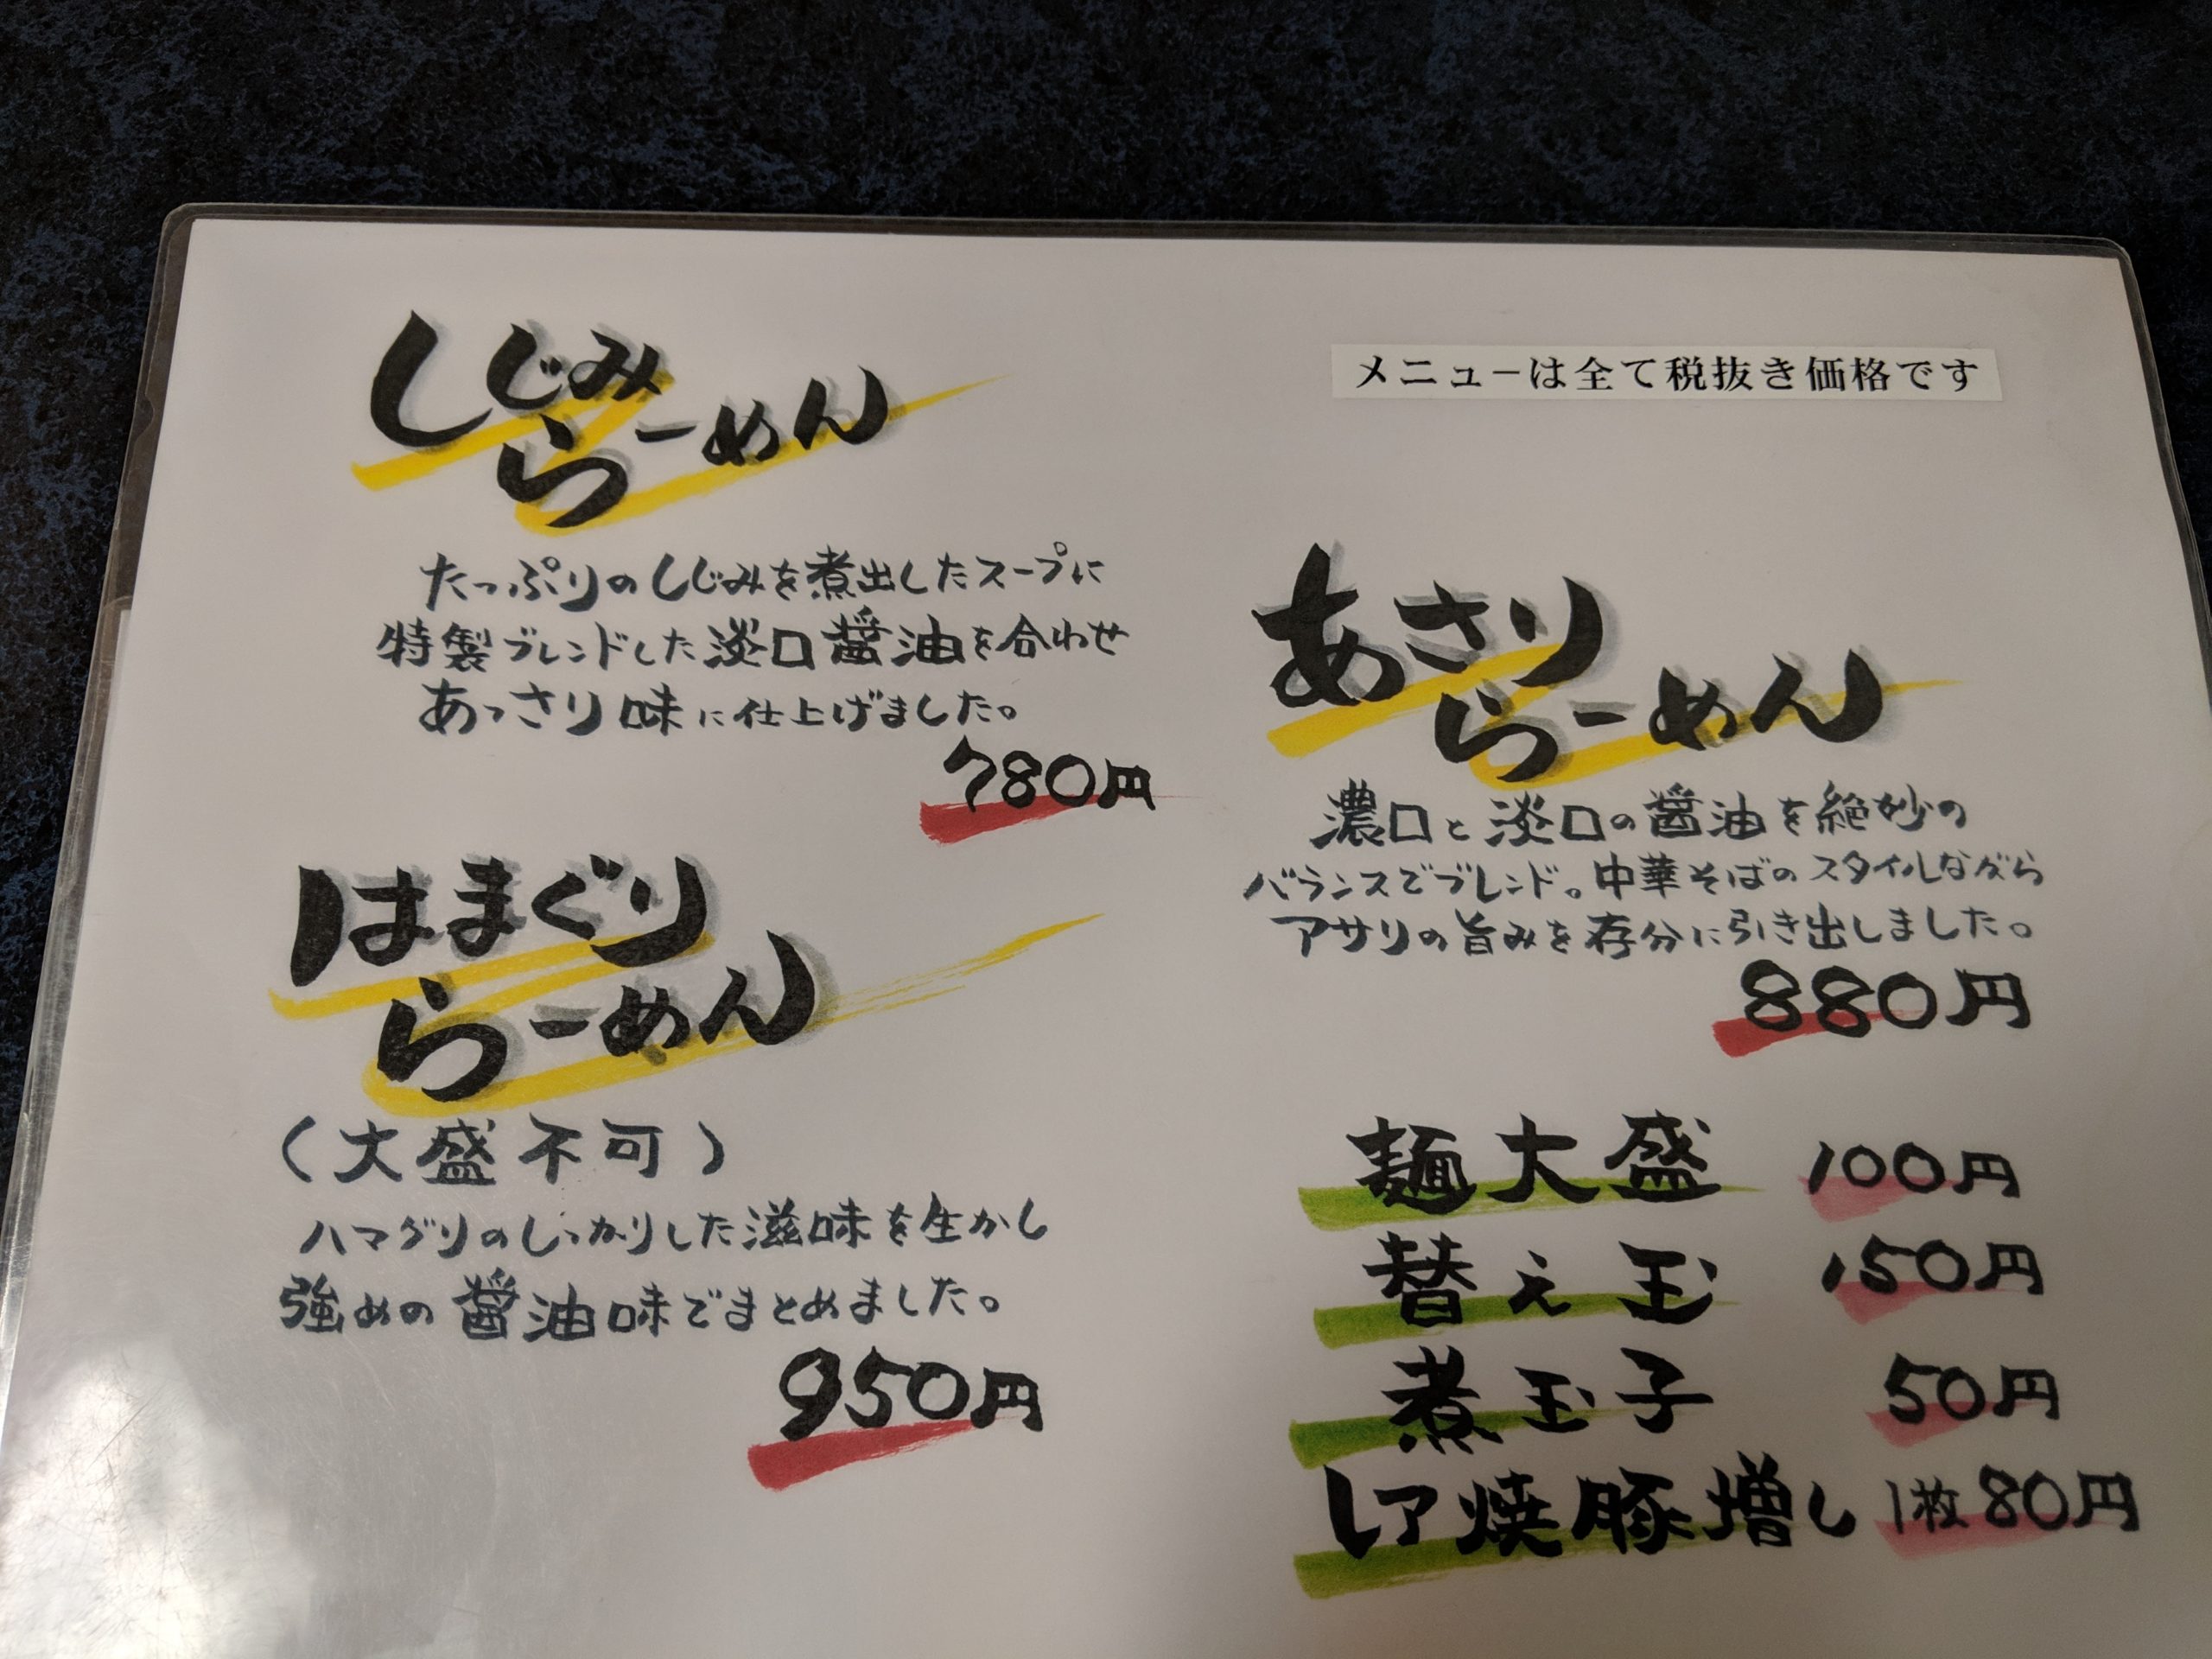 しじみ
らーめん
たっぷりのしじみを煮出したスープに
特製ブレンドした淡口醤油を合わせ
あっさり味に仕上げました。
780円
はまぐり
らーめん
(大盛不可)
ハマグリのしっかりした滋味を生かし
強めの醤油味でまとめました。
950円
メニューは全て税抜き価格です
あさり
らーめん
濃口と淡口の醤油を絶妙の
バランスでブレンド。中華そばのスタイルながら
アサリの旨みを存分に引き出しました。
880円
麺大盛 100円
替え玉 150円
煮玉子 50円
レア焼豚増し 1枚80円